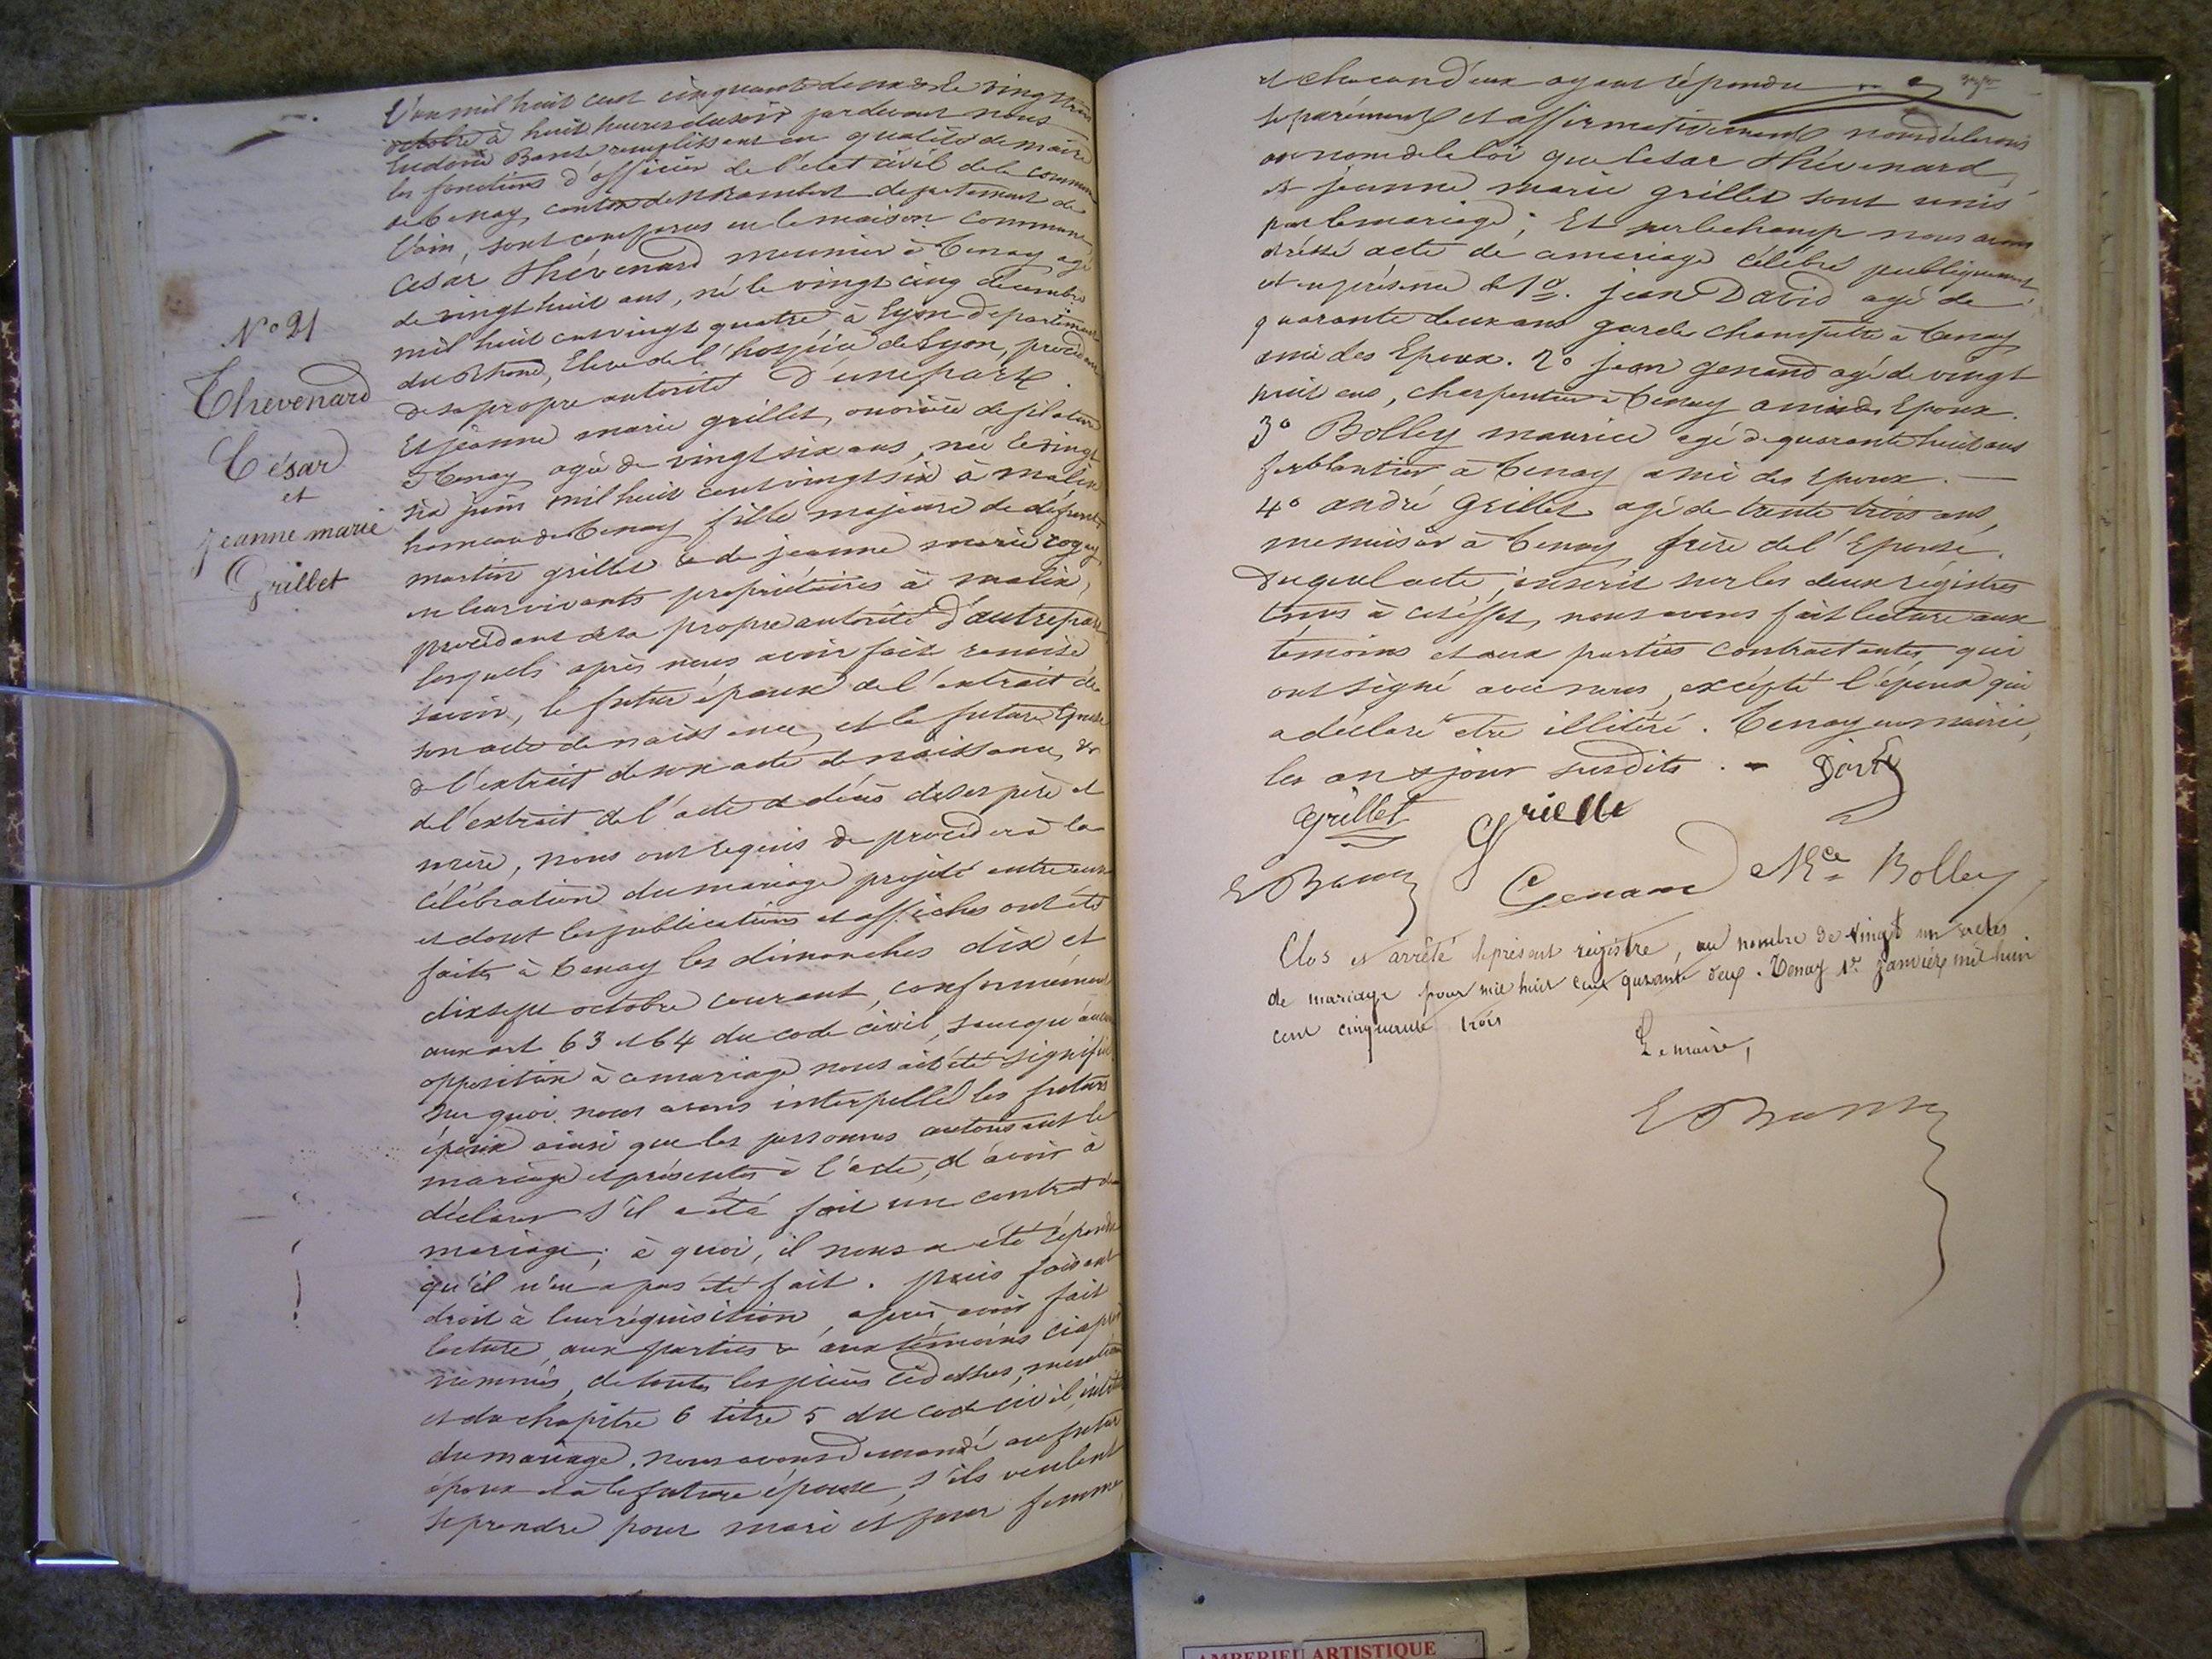 L'an mil huit cent cinquante deux & le vingt trois
octobre à huit heures du soir pardevant nous
remplissant en qualité de maire
les fonctions d'officier de l'état civil de la commune
de Tenay, canton de St Rambert département de
l'ain, sont comparus en la maison commune,
César Thévenard meunier à Tenay agé
de vingt huit ans, né le vingt cinq décembre
mil huit cent vingt quatre à Lyon département
du Rhône, Elève de l'hospice de Lyon, procédant
de sa propre autorité D'une part.
N° 21
Thevenard
César
et
jeanne marie
Grillet
Et jeanne marie grillet, ouvrière de filature
à Tenay agée de vingt six ans, née le vingt
six juin mil huit cent vingt six à Malix
hameau de Tenay fille majeure de défunts
martin grillet & de jeanne marie
en leur vivants propriétaires à malix,
procédant de sa propre autorité D'autre part
lesquels après nous avoir fait remise
savoir, le futur époux de l'extrait de
son acte de naissance, et la future Epouse
de l'extrait de son acte de naissance, &
de l'extrait de l'acte de décès de ses père et
mère, nous ont requis de procéder à la
célébration du mariage projeté entre eux
et dont les publications et affiches ont été
faites à Tenay les dimanches dix et
dix sept octobre courant, conformément
aux art 63 et 64 du code civil, sans qu'aucune
opposition à ce mariage nous ait été signifiée
sur quoi nous avons interpellé les futurs
époux ainsi que les personnes autorisant le
mariage et présentes à l'acte, d'avoir à
déclarer s'il a été fait un contrat de
mariage; à quoi, il nous a été répondu
qu'il n'en a pas été fait. puis faisant
droit à leur réquisition, après avoir fait
lecture, aux parties & aux témoins ciaprès
nommés, de toutes les pièces ci dessus, mentionnées
et du chapitre 6 titre 5 du code civil, intitulé
du mariage. nous avons demandé au futur
époux et à la future épouse, s'ils veulent
se prendre pour mari et pour femme
et chacun d'eux ayant répondu
séparément et affirmativement nous déclarons
au nom de la loi que César Thévenard
et jeanne marie grillet sont unis
par le mariage; Et sur le champ nous avons
dressé acte de ce mariage célébré publiquement,
et en présence de 1°. jean David agé de
quarante deux ans garde champêtre à Tenay
ami des Epoux. 2° jean genand agé de vingt
huit ans, charpentier à Tenay ami des Epoux.
3° Bolley maurice agé de quarante huit ans
ferblantier à Tenay ami des Epoux.
4° andré Grillet agé de trente trois ans,
menuisier à Tenay frère de l'Epouse.
Duquel acte, inscrit sur les deux régistres
tenus à cet effet, nous avons fait lecture aux
témoins et aux parties contractantes qui
ont signé avec nous, excépté l'époux qui
a déclaré être illitéré. Tenay en mairie,
les an & jour susdits.
Grillet Grille
Genand Mce Bolley
Clos et arrêté le présent régistre, au nombre de vingt un actes
de mariage pour mil huit cent quarante deux. Tenay 1er janvier mil huit
cent cinquante trois
Le maire,
AMBERIEU ARTISTIQUE